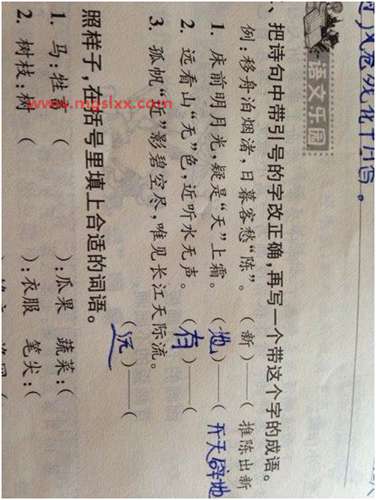 语文乐园
、把诗句中带引号的字改正确,再写一个带这个字的成语。
例:移舟泊烟渚,日暮客愁“陈”。 (新)——( 推陈出新
1. 床前明月光,疑是“天”上霜。 (地)——( 开天辟地
2. 远看山“无”色,近听水无声。 (有)——(
3. 孤帆“近”影碧空尽,唯见长江天际流。 (远)——(
照样子,在括号里填上合适的词语。
1. 马:牲畜 ( ):瓜果 蔬菜:(
2. 树枝:树 ( ):衣服 笔尖:(
www.mgslxx.com